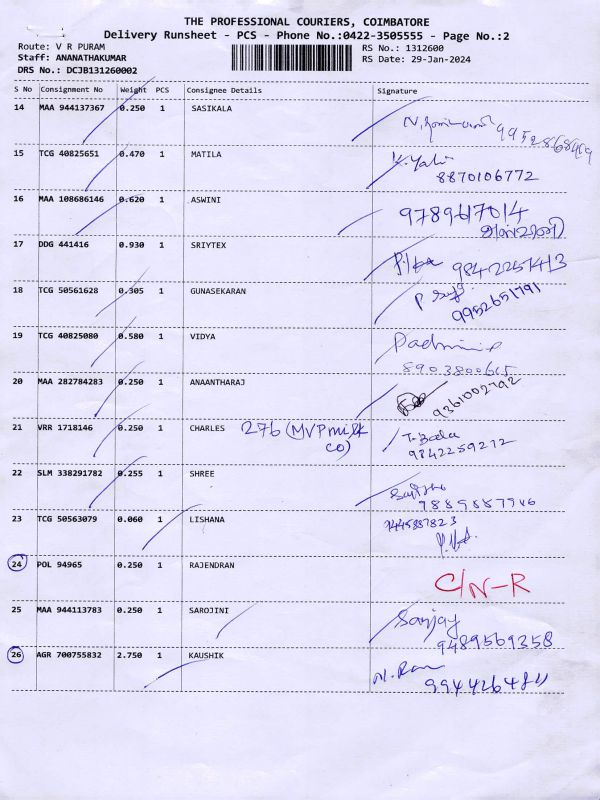 THE PROFESSIONAL COURIERS, COIMBATORE
Delivery Runsheet - PCS - Phone No.:0422-3505555 - Page No.:2
Route: V R PURAM
Staff: ANANATHAKUMAR
DRS No.: DCJB131260002
RS No.: 1312600
RS Date: 29-Jan-2024
S No Consignment No Weight PCS Consignee Details Signature
14 MAA 944137367 0.250 1 SASIKALA
15 TCG 40825651 0.470 1 MATILA
8870106772
16 MAA 108686146 0.620 1 ASWINI 9789617014
17 DDG 441416 0.930 1 SRIYTEX
9842251413
18 TCG 50561628 0.305 1 GUNASEKARAN
9952651791
19 TCG 40825080 0.580 1 VIDYA
8903800615
20 MAA 282784283 0.250 1 ANAANTHARAJ 9361002792
21 VRR 1718146 0.250 1 CHARLES 276 (MVP milk co) T. Bala
9842259272
22 SLM 338291782 0.255 1 SHREE
23 TCG 50563079 0.060 1 LISHANA
24 POL 94965 0.250 1 RAJENDRAN C/N-R
25 MAA 944113783 0.250 1 SAROJINI Sanjay
9489569358
26 AGR 700755832 2.750 1 KAUSHIK